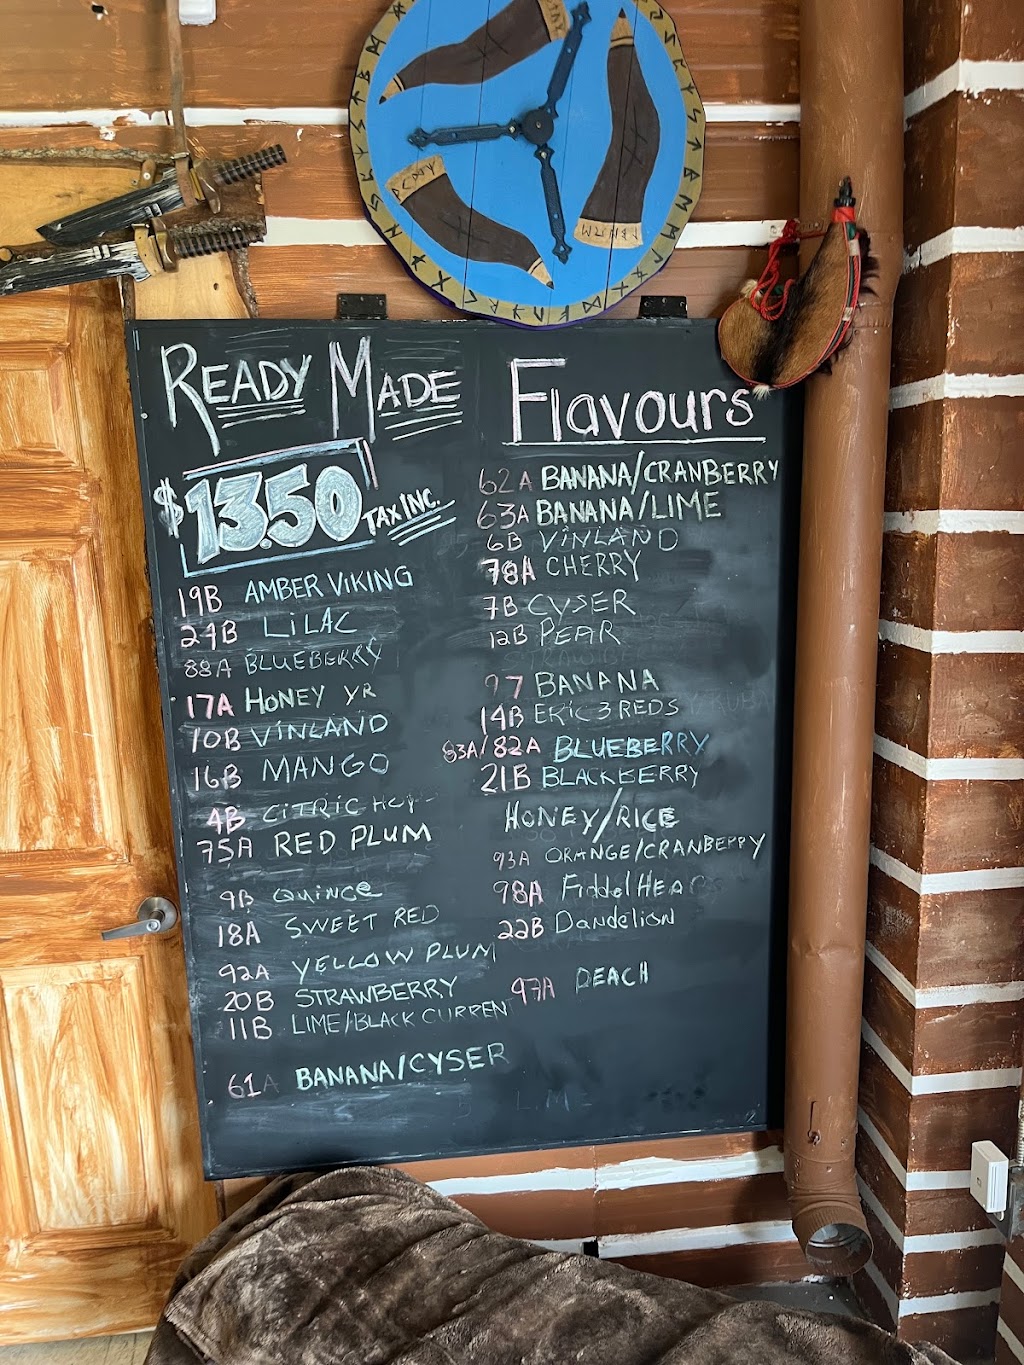 READY MADE
$13.50 TAX INC.
19B AMBER VIKING
LILAC
88A BLUEBERRY
17A HONEY YR
10B VINLAND
16B MANGO
4B CITRIC
75A RED PLUM
9B QUINCE
18A SWEET RED
92A YELLOW PLUM
20B STRAWBERRY
11B LIME/BLACK CURRENT
61A BANANA/CYSER
Flavours
62A BANANA/CRANBERRY
63A BANANA/LIME
6B VINLAND
78A CHERRY
7B CYSER
12B PEAR
97 BANANA
14B ERIC 3 REDS
83A/82A BLUEBERRY
21B BLACKBERRY
HONEY/RICE
93A ORANGE/CRANBERRY
98A FiddelHeads
22B Dandelion
97A PEACH